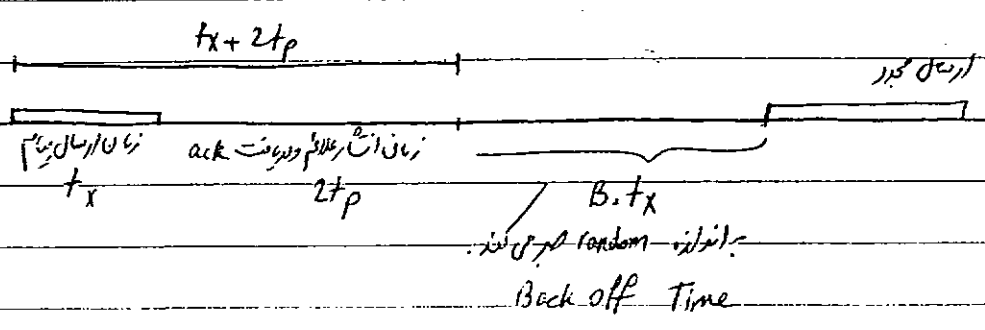 tx + 2tp
ارسال مجدد
زمان ارسال پیام
زمان انتشار علائم و دریافت ack
tx
2tp
B. tx
به اندازه random صبر می کند.
Back off Time